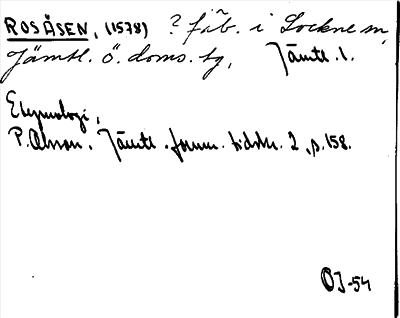 ROSÅSEN, (1578) ? fäb. i Lockne sn,
Jämtl. ö. doms. tg, Jämtl. l.
Etymologi,
P. Olsson. Jämtl. fornm. tidskr. 2, p. 158.
OJ-54